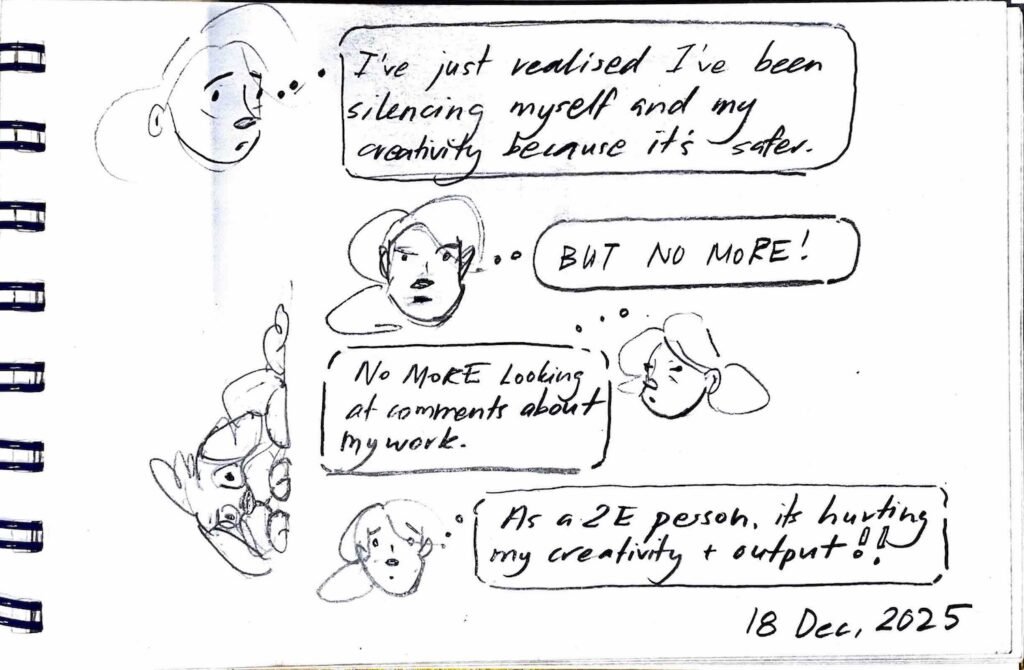 I've just realised I've been
silencing myself and my
creativity because it's safer.
BUT NO MORE!
NO MORE Looking
at comments about
my work.
As a 2E person, its hurting
my creativity + output!!
18 Dec, 2025